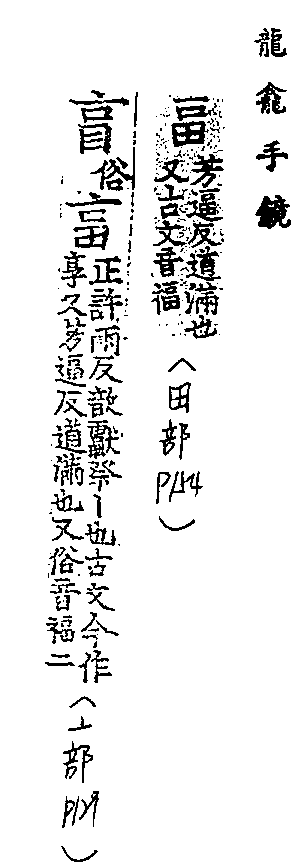 龍龕手鏡
畐
芳逼反道滿也
又古文音福
(田部 )
俗
正許兩反歆獻祭丨也古文今作
享又芳逼反道滿也又俗音福二
(亠部 P129)